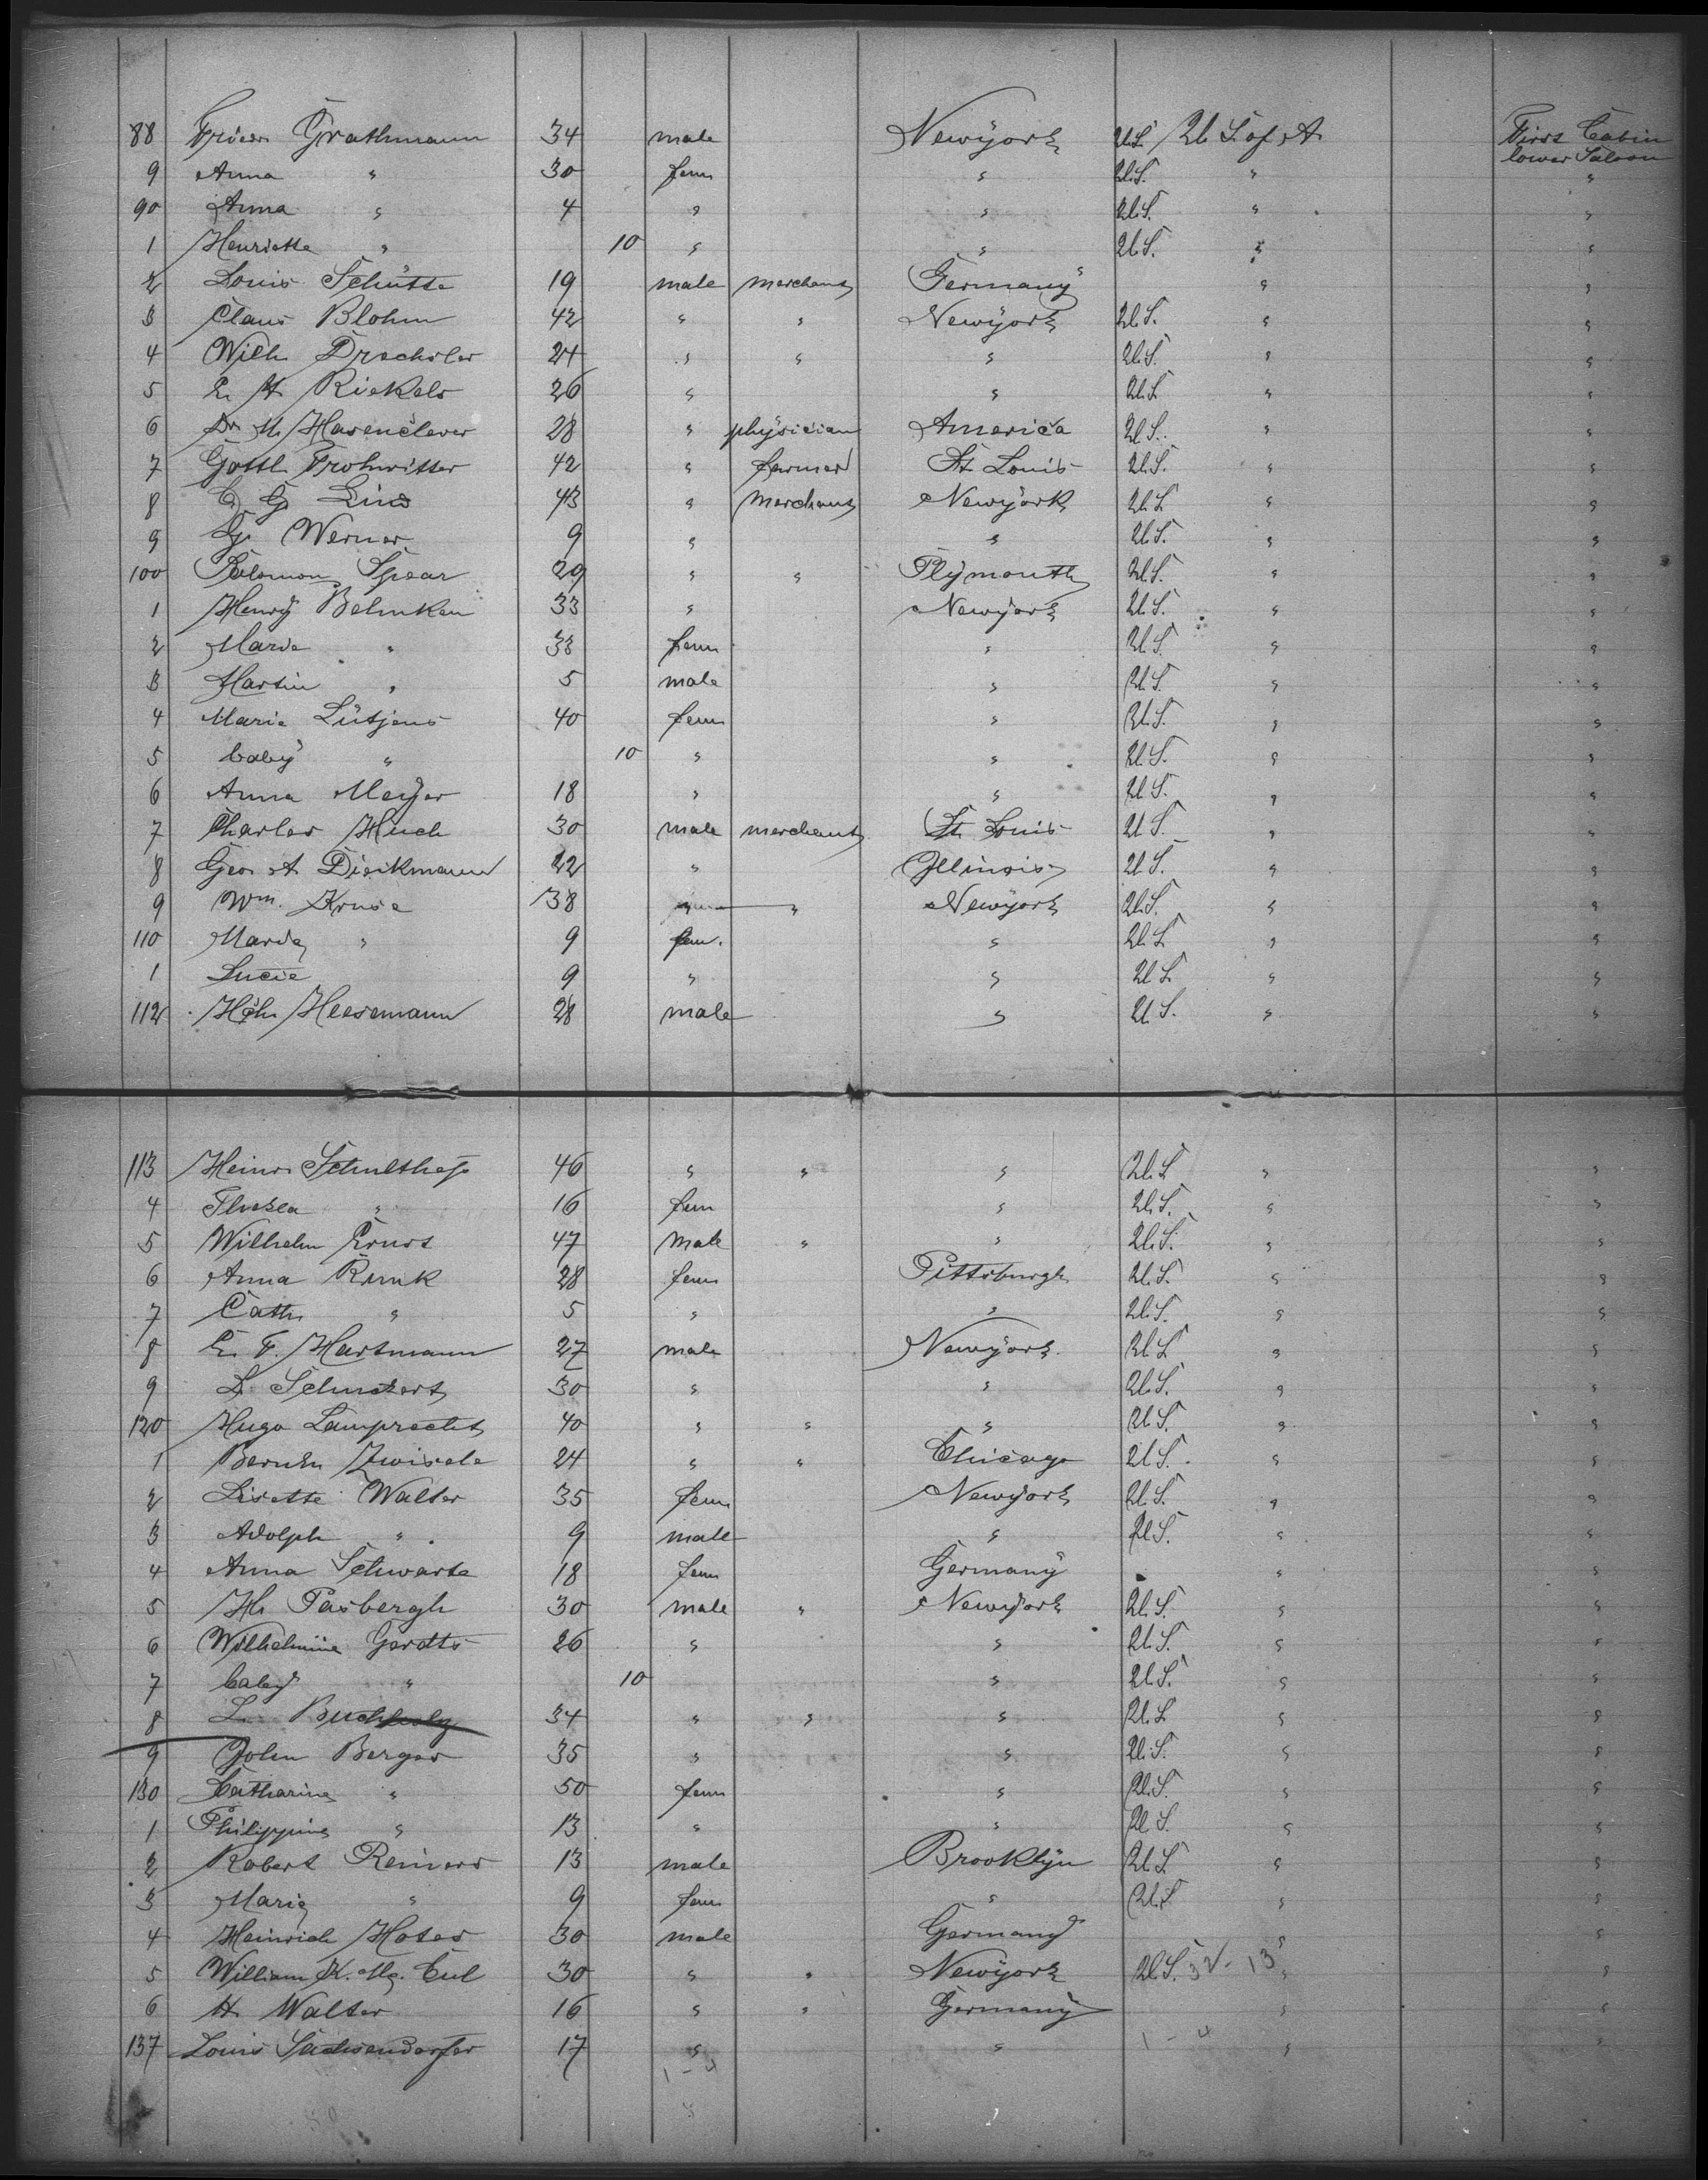 88 Friedr Grathmann 34 male Newyork U.S. U. S. of A. First Cabin
lower Saloon
9 Anna " 30 fem " U.S. " "
90 Anna " 4 " " U.S. " "
1 Henriette " 10 " " U.S. " "
2 Louis Schütte 19 male merchant Germany " "
3 Claus Blohm 42 " " Newyork U.S. " "
4 Wilh. Drechsler 24 " " " U.S. " "
5 E. H. Rickels 26 " " U.S. " "
6 Dr. M. Hasenclever 28 " physician America U.S. " "
7 Gottl. Frohwitter 42 " farmer St. Louis U.S. " "
8 C. G. Lind 43 " Merchant Newyork U.S. " "
9 G. Werner 9 " " U.S. " "
100 Salomon Spear 29 " " Plymouth U.S. " "
1 Henry Behnken 33 " Newyork U.S. " "
2 Marie " 33 fem " U.S. " "
3 Martin " 5 male " U.S. " "
4 Marie Lütjens 40 fem " U.S. " "
5 baby " 10 " " U.S. " "
6 Anna Meyer 18 " " U.S. " "
7 Charles Huch 30 male merchant St. Louis U.S. " "
8 Geo. A. Dieckmann 22 " Illinois U.S. " "
9 Wm. Kruse 38 " " Newyork U.S. " "
110 Marie " 9 fem. " U.S. " "
1 Lucie 9 " " U.S. " "
112 Hch. Heesemann 28 male " U.S. " "
113 Heinr. Schulthess 46 " " " U.S. " "
4 Thekla " 16 fem " U.S. " "
5 Wilhelm Ernst 47 Male " " U.S. " "
6 Anna Runk 28 fem Pittsburgh U.S. " "
7 Cath. " 5 " " U.S. " "
8 E. F. Hartmann 27 male Newyork U.S. " "
9 L. Schuckert 30 " " U.S. " "
120 Hugo Lamprecht 40 " " " U.S. " "
1 Bernh. Zwisele 24 " " Chicago U.S. " "
2 Lisette Walter 35 fem Newyork U.S. " "
3 Adolph " 9 male " U.S. " "
4 Anna Schwarte 18 fem Germany " "
5 H. Pasbergh 30 male " Newyork U.S. " "
6 Wilhelmine Gerdts 26 " " U.S. " "
7 baby " 10 " U.S. " "
8 L. Buchholz 34 " " " U.S. " "
9 John Berger 35 " " U.S. " "
130 Catharine " 50 fem " U.S. " "
1 Philippine " 13 " " U.S. " "
2 Robert Reiners 13 male Brooklyn U.S. " "
3 Marie " 9 fem " U.S. " "
4 Heinrich Hotes 30 male Germany " "
5 William K. Mc. 30 " " Newyork U.S. 32 - 13 " "
6 H. Walter 16 " " Germany " "
137 Louis Sachsendorfer 17 " " 1 - 4 " "
1 - 4